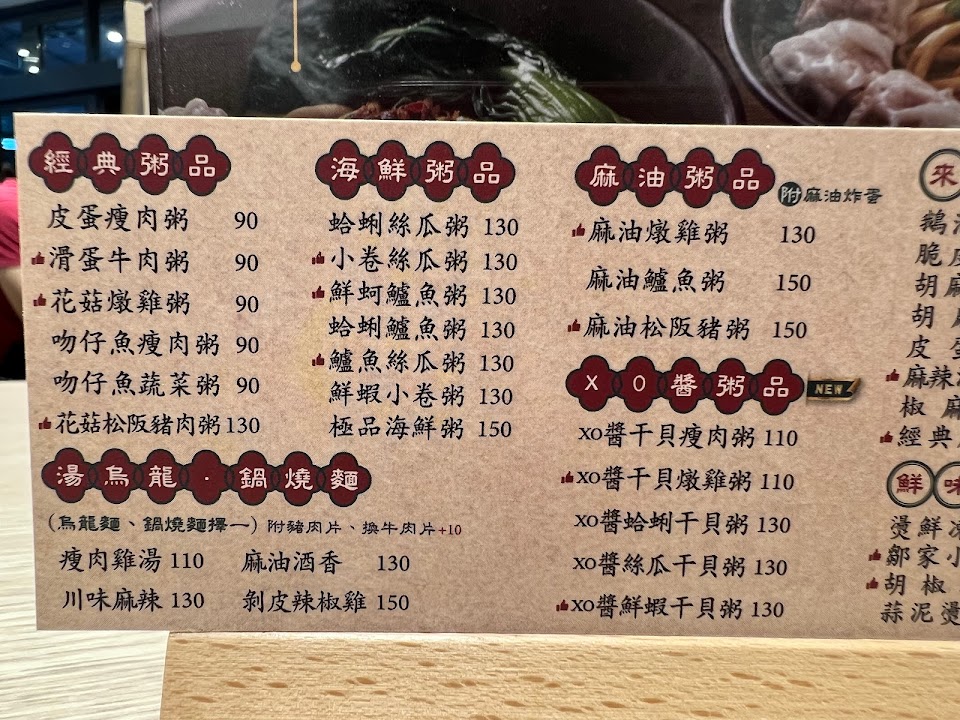 經典粥品
皮蛋瘦肉粥 90
滑蛋牛肉粥 90
花菇燉雞粥 90
吻仔魚瘦肉粥 90
吻仔魚蔬菜粥 90
花菇松阪豬肉粥 130
湯烏龍・鍋燒麵
(烏龍麵、鍋燒麵擇一) 附豬肉片、換牛肉片+10
瘦肉雞湯 110 麻油酒香 130
川味麻辣 130 剝皮辣椒雞 150
海鮮粥品
蛤蜊絲瓜粥 130
小卷絲瓜粥 130
鮮蚵鱸魚粥 130
蛤蜊鱸魚粥 130
鱸魚絲瓜粥 130
鮮蝦小卷粥 130
極品海鮮粥 150
麻油粥品 附麻油炸蛋
麻油燉雞粥 130
麻油鱸魚粥 150
麻油松阪豬粥 150
XO醬粥品 NEW
XO醬干貝瘦肉粥 110
XO醬干貝燉雞粥 110
XO醬蛤蜊干貝粥 130
XO醬絲瓜干貝粥 130
XO醬鮮蝦干貝粥 130
來
鵝
脆皮
胡麻
胡麻
皮蛋
麻辣
椒麻
經典
鮮味
燙鮮
鄒家小
胡椒
蒜泥燙